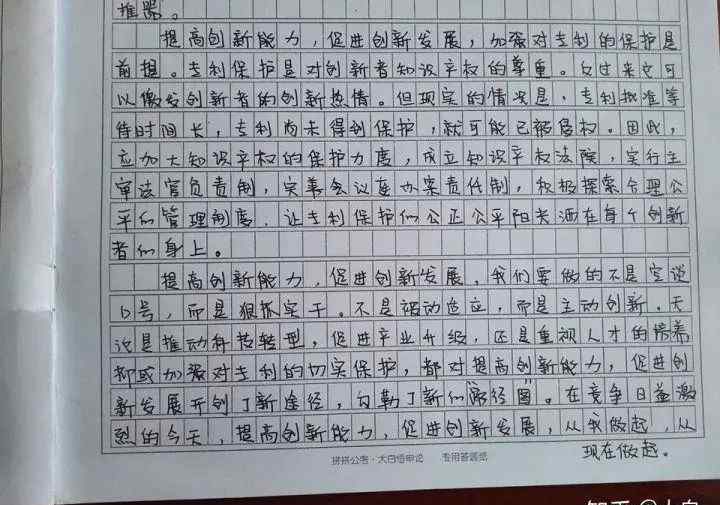 推器。
提高创新能力，促进创新发展，加强对专利的保护是
前提。专利保护是对创新者知识产权的尊重。反过来它可
以激发创新者的创新热情。但现实的情况是，专利批准等
待时间长，专利尚未得到保护，就可能已被侵权。因此，
应加大知识产权的保护力度，成立知识产权法院，实行主
审法官负责制，完善合议庭办案责任制，积极探索合理公
平的管理制度，让专利保护的公正公平阳光洒在每个创新
者的身上。
提高创新能力，促进创新发展，我们要做的不是空谈
口号，而是狠抓实干。不是被动适应，而是主动创新。无
论是推动科技转型，促进产业升级，还是重视人才的培养
抑或加强对专利的切实保护，都对提高创新能力，促进创
新发展开创了新途径，勾勒了新的"路径图"。在竞争日益激
烈的今天，提高创新能力，促进创新发展，从我做起，从
现在做起。
拼搏公考·大白悟申论 专用答题纸
知乎 @大白